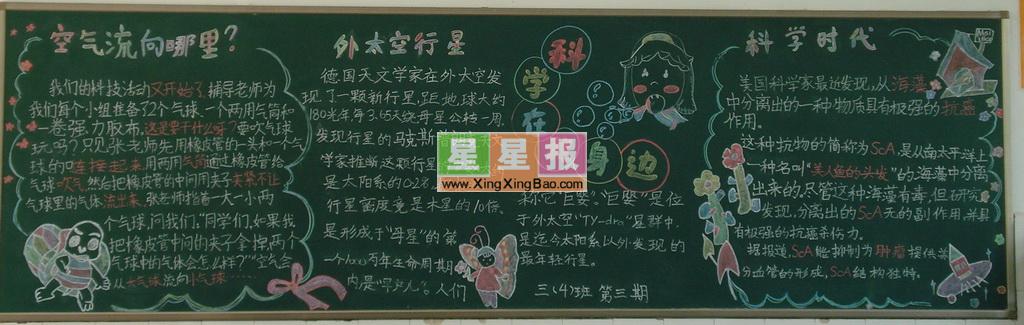 空气流向哪里？
我们的科技活动又开始了,辅导老师为
我们每个小组准备了2个气球、一个两用气筒和
一卷强力胶布,这是要干什么呀？要吹气球
玩吗？只见张老师先用橡皮管的一头和一个气
球的口连接起来,用两用气筒通过橡皮管给
气球吹气,然后把橡皮管的中间用夹子夹紧不让
气球里的气体流出来,张老师指着一大一小两
个气球,问我们,"同学们,如果我
把橡皮管中间的夹子拿掉,两个
气球中的气体会怎么样？"空气会
从大气球流向小气球……
外太空行星
德国天文学家在外太空发
现了一颗新行星,距地球大约
180光年,每3.65天绕母星公转一周,
发现行星的马克斯
学家推断这颗行星
是太阳系的
行星密度竟是木星的10倍。
是形成于"母星"的第
一个1000万年生命周期
内是 人们
称它"巨婴"。"巨婴"是位
于外太空 星群中,
是迄今太阳系以外发现的
最年轻行星。
科
学
在
身
边
星星报
www.XingXingBao.com
三(4)班 第三期
科学时代
美国科学家最近发现,从海藻
中分离出的一种物质具有极强的抗癌
作用。
这种抗物的简称为ScA,是从南太平洋上
一种名叫"美人鱼的头发"的海藻中分离
出来的,尽管这种海藻有毒,但研究
发现,分离出的ScA无的副作用,并具
有极强的抗癌杀伤力。
据报道,ScA能抑制为肿瘤提供养
分血管的形成,ScA结构独特。